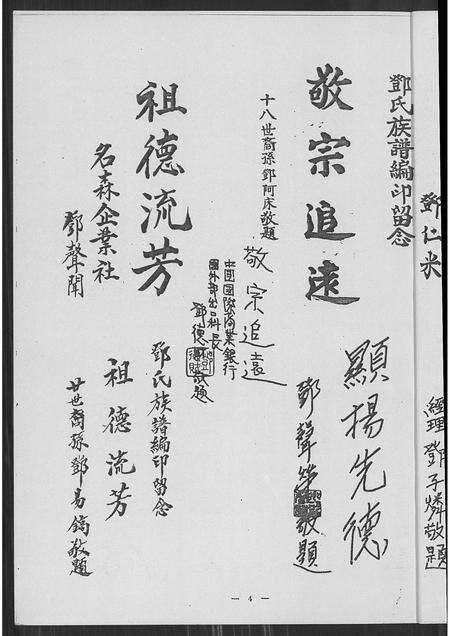 鄧仁米
經理鄧子憐敬題
鄧氏族譜編印留念
敬宗追遠
十八世裔孫鄧阿床敬題
顯揚先德
鄧聲敬題
敬宗追遠
中國國際商業銀行
國外部出口科長
鄧德敬題
祖德流芳
名森企業社
鄧聲聞
鄧氏族譜編印留念
祖德流芳
廿世裔孫鄧易鏑敬題
— 4 —